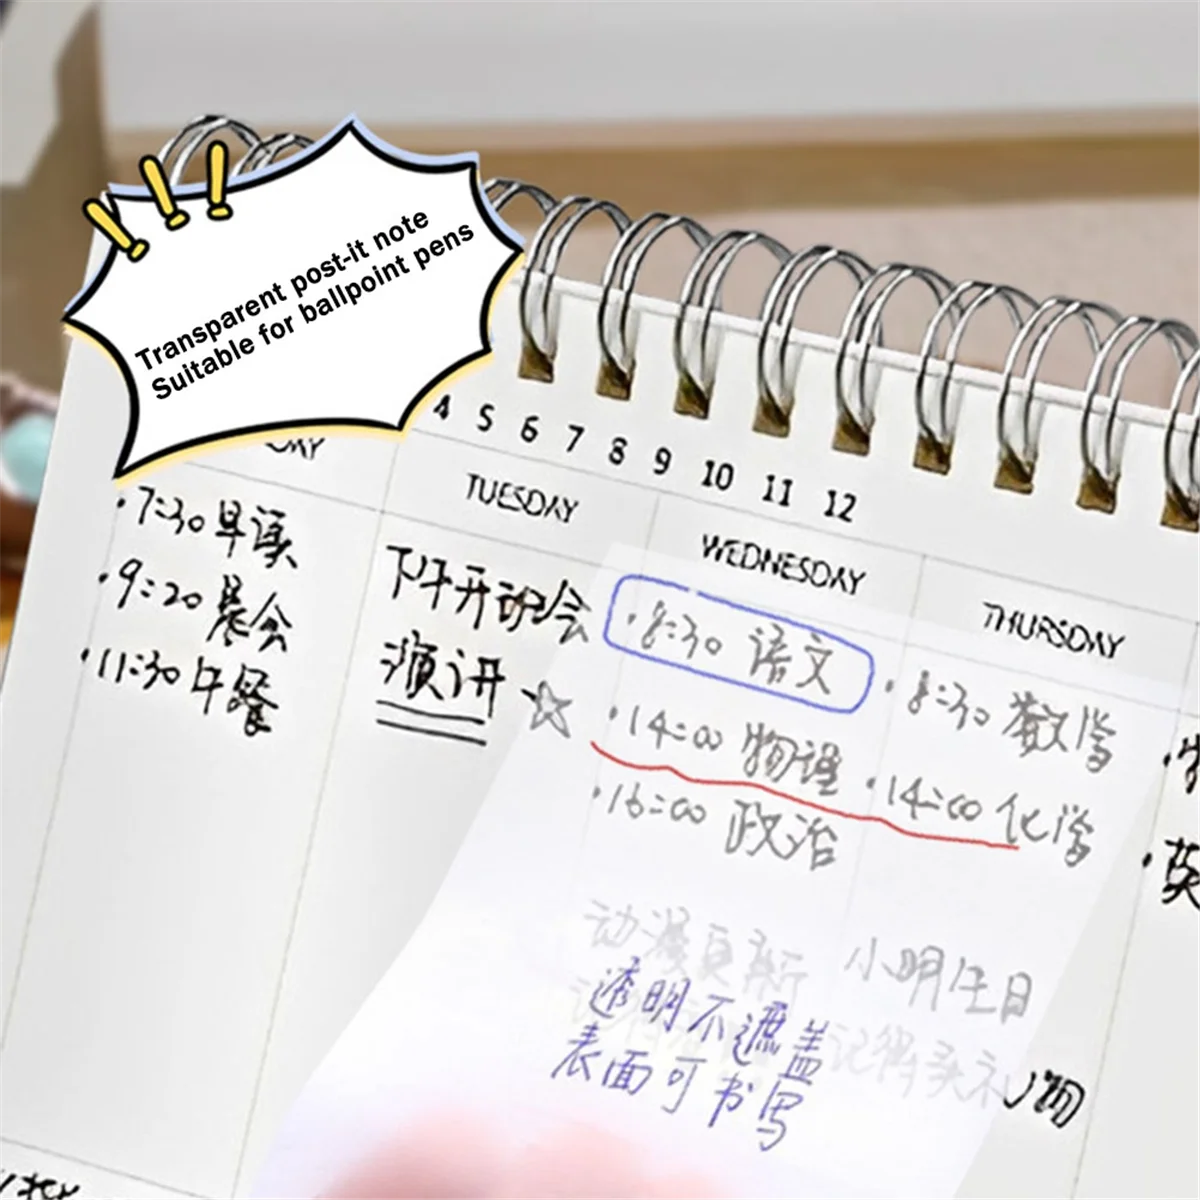 Transparent post-it note
Suitable for ballpoint pens
4 5 6 7 8 9 10 11 12
TUESDAY
WEDNESDAY
THURSDAY
·7:30 早读
·9:20 晨会
·11:30 午餐
下午开班会
演讲
·8:30 语文
·14:00 物理
·16:00 政治
·8:30 数学
·14:00 化学
动漫更新
小明生日
记得买礼物
透明不遮盖
表面可书写
·英